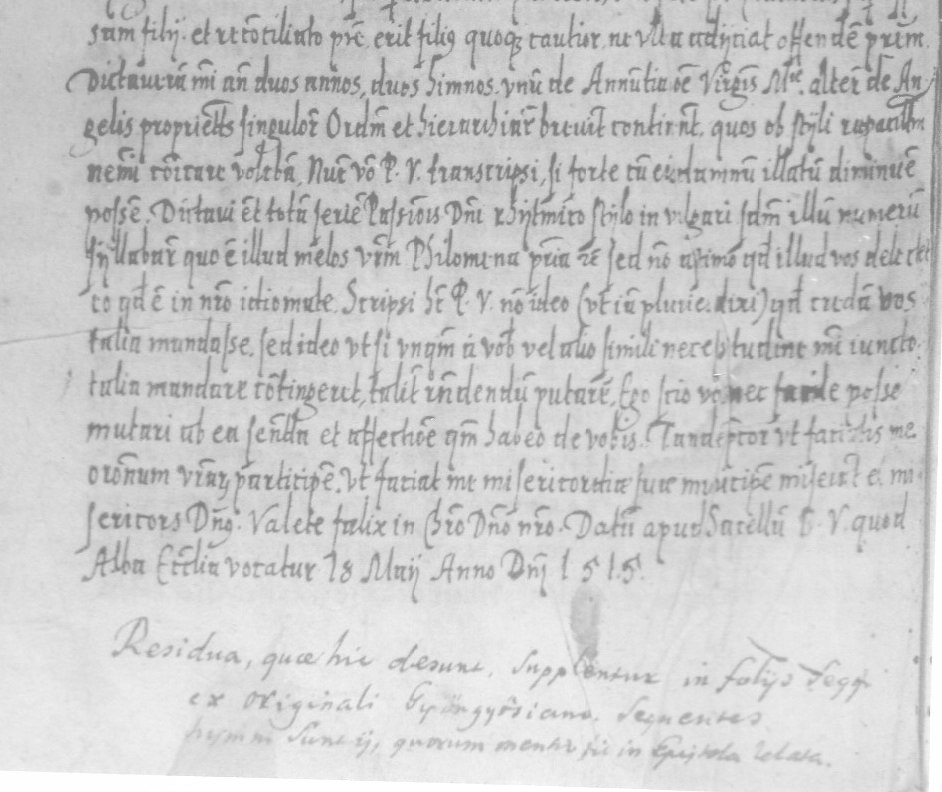 suam filij. et recōciliato pr̄e, erit filiꝯ quoqꝫ cautior, ne vlla adijciat offendēˉ prīm.
Dictauerā m̄i an̄ duos annos, duos himnos. vnū de Annūtia oē Virgīs Mᵃᵉ. alterū de An
gelis proprietēs singuloꝝ Ordm̄ et hierarchiaꝝ breuit̄ continēt. quos ob stÿli
nemi cōicare volebā. Nūc vō P. V. transcripsi, si forte cū eis damnū illatū diminuē
possē. Dictaui ēt totā seriē Passiōis Dn̄i rhÿtmico stÿlo in vulgari scdm̄ illū numerū
sÿllabaꝝ quo ē illud melos vr̄m Philomena pr̄via rc̄ sed nō existimo qd illud vos delectet
eo qd ē in nr̄o idiomate. Scripsi hec P. V. nō ideo (vt iā plurie. dixi) qd credā vos
talia mandasse, sed ideo vt si vnqm̄ a vob̄ vel alio simili necessitudine m̄i iuncto,
talia mandare cōtingeret, talit̄ rn̄dendū putarē, Ego scio vos nec facile posse
mutari ab ea sen̄tia et affectiōe qm̄ habeo de vobis. Tandē pcor vt faciatis me
orōnum vr̄aꝝ participē. Vt faciat me misericordiæ suæ m̄ticipē mi mi-
sericors Dn̄s. Valete fælix in Chr̄o Dn̄o nr̄o. Datū apud Sacellū B. V. quod
Alba Ecclia vocatur 18 Maij Anno Dn̄j 1515.
Residua, quæ hic desunt, supplentur in folijs seqq
ex originali Gyöngyösiano. Sequentes
hymni sunt ij, quorum mentio fit in Epistola relata.